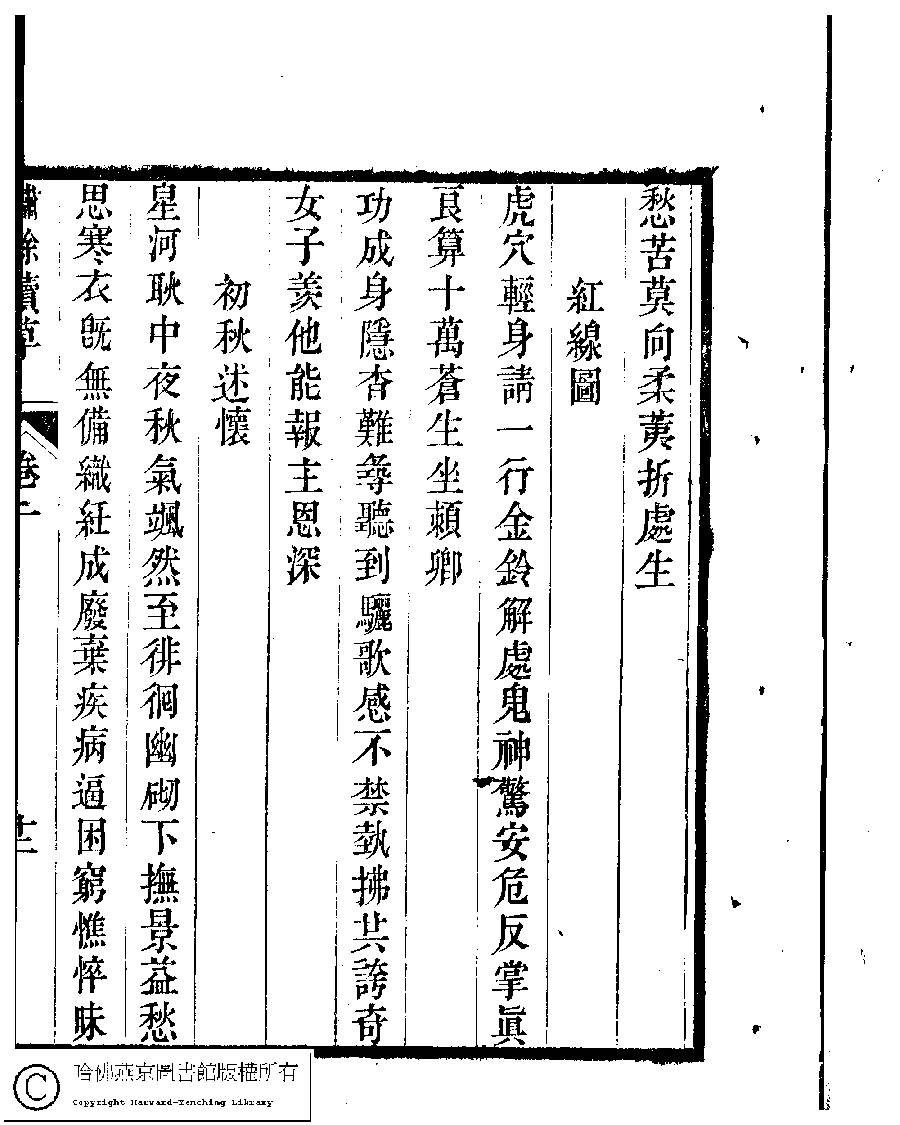 愁苦莫向柔荑折處生
紅線圖
虎穴輕身請一行金鈴解處鬼神驚安危反掌眞
良算十萬蒼生坐賴卿
功成身隱杳難尋聽到驪歌感不禁執拂共誇奇
女子羨他能報主恩深
初秋述懷
星河耿中夜秋氣颯然至徘徊幽砌下撫景益愁
思寒衣旣無備織紝成廢棄疾病逼困窮憔悴昧
繡餘續草
卷二
十二
哈佛燕京圖書館版權所有
Copyright Harvard-Yenching Library